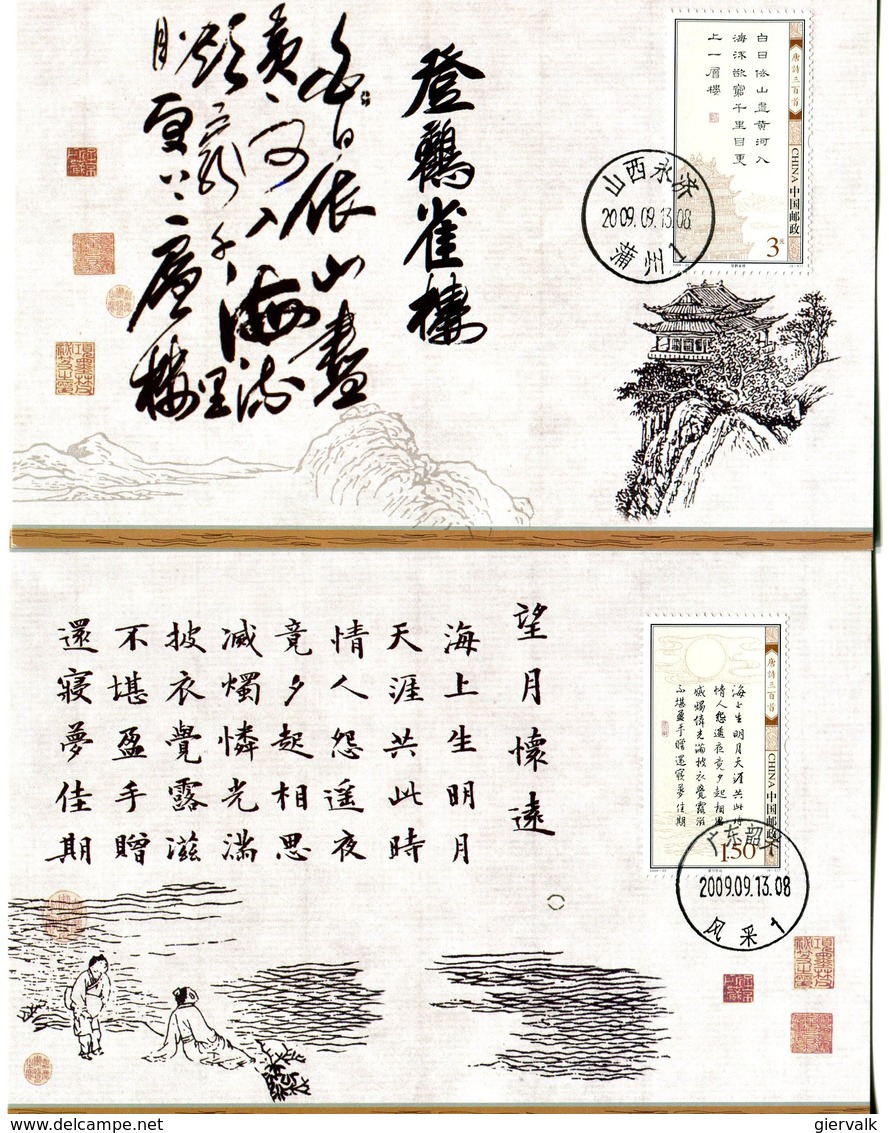 登鸛雀樓
白日依山盡
黄河入海流
欲窮千里
目更上一層樓
唐詩三百首
白日依山盡黄河入
海流欲窮千里目更
上一層樓
CHINA 中国邮政
3元
山西永济
2009.09.13.08
蒲州 1
望月懷遠
海上生明月
天涯共此時
情人怨遥夜
竟夕起相思
滅燭憐光滿
披衣覺露滋
不堪盈手贈
還寢夢佳期
唐詩三百首
海上生明月天涯共此時
情人怨遥夜竟夕起相思
滅燭憐光滿披衣覺露滋
不堪盈手贈還寢夢佳期
CHINA 中国邮政
1.50
广东韶关
2009.09.13.08
风采 1
www.delcampe.net
giervalk